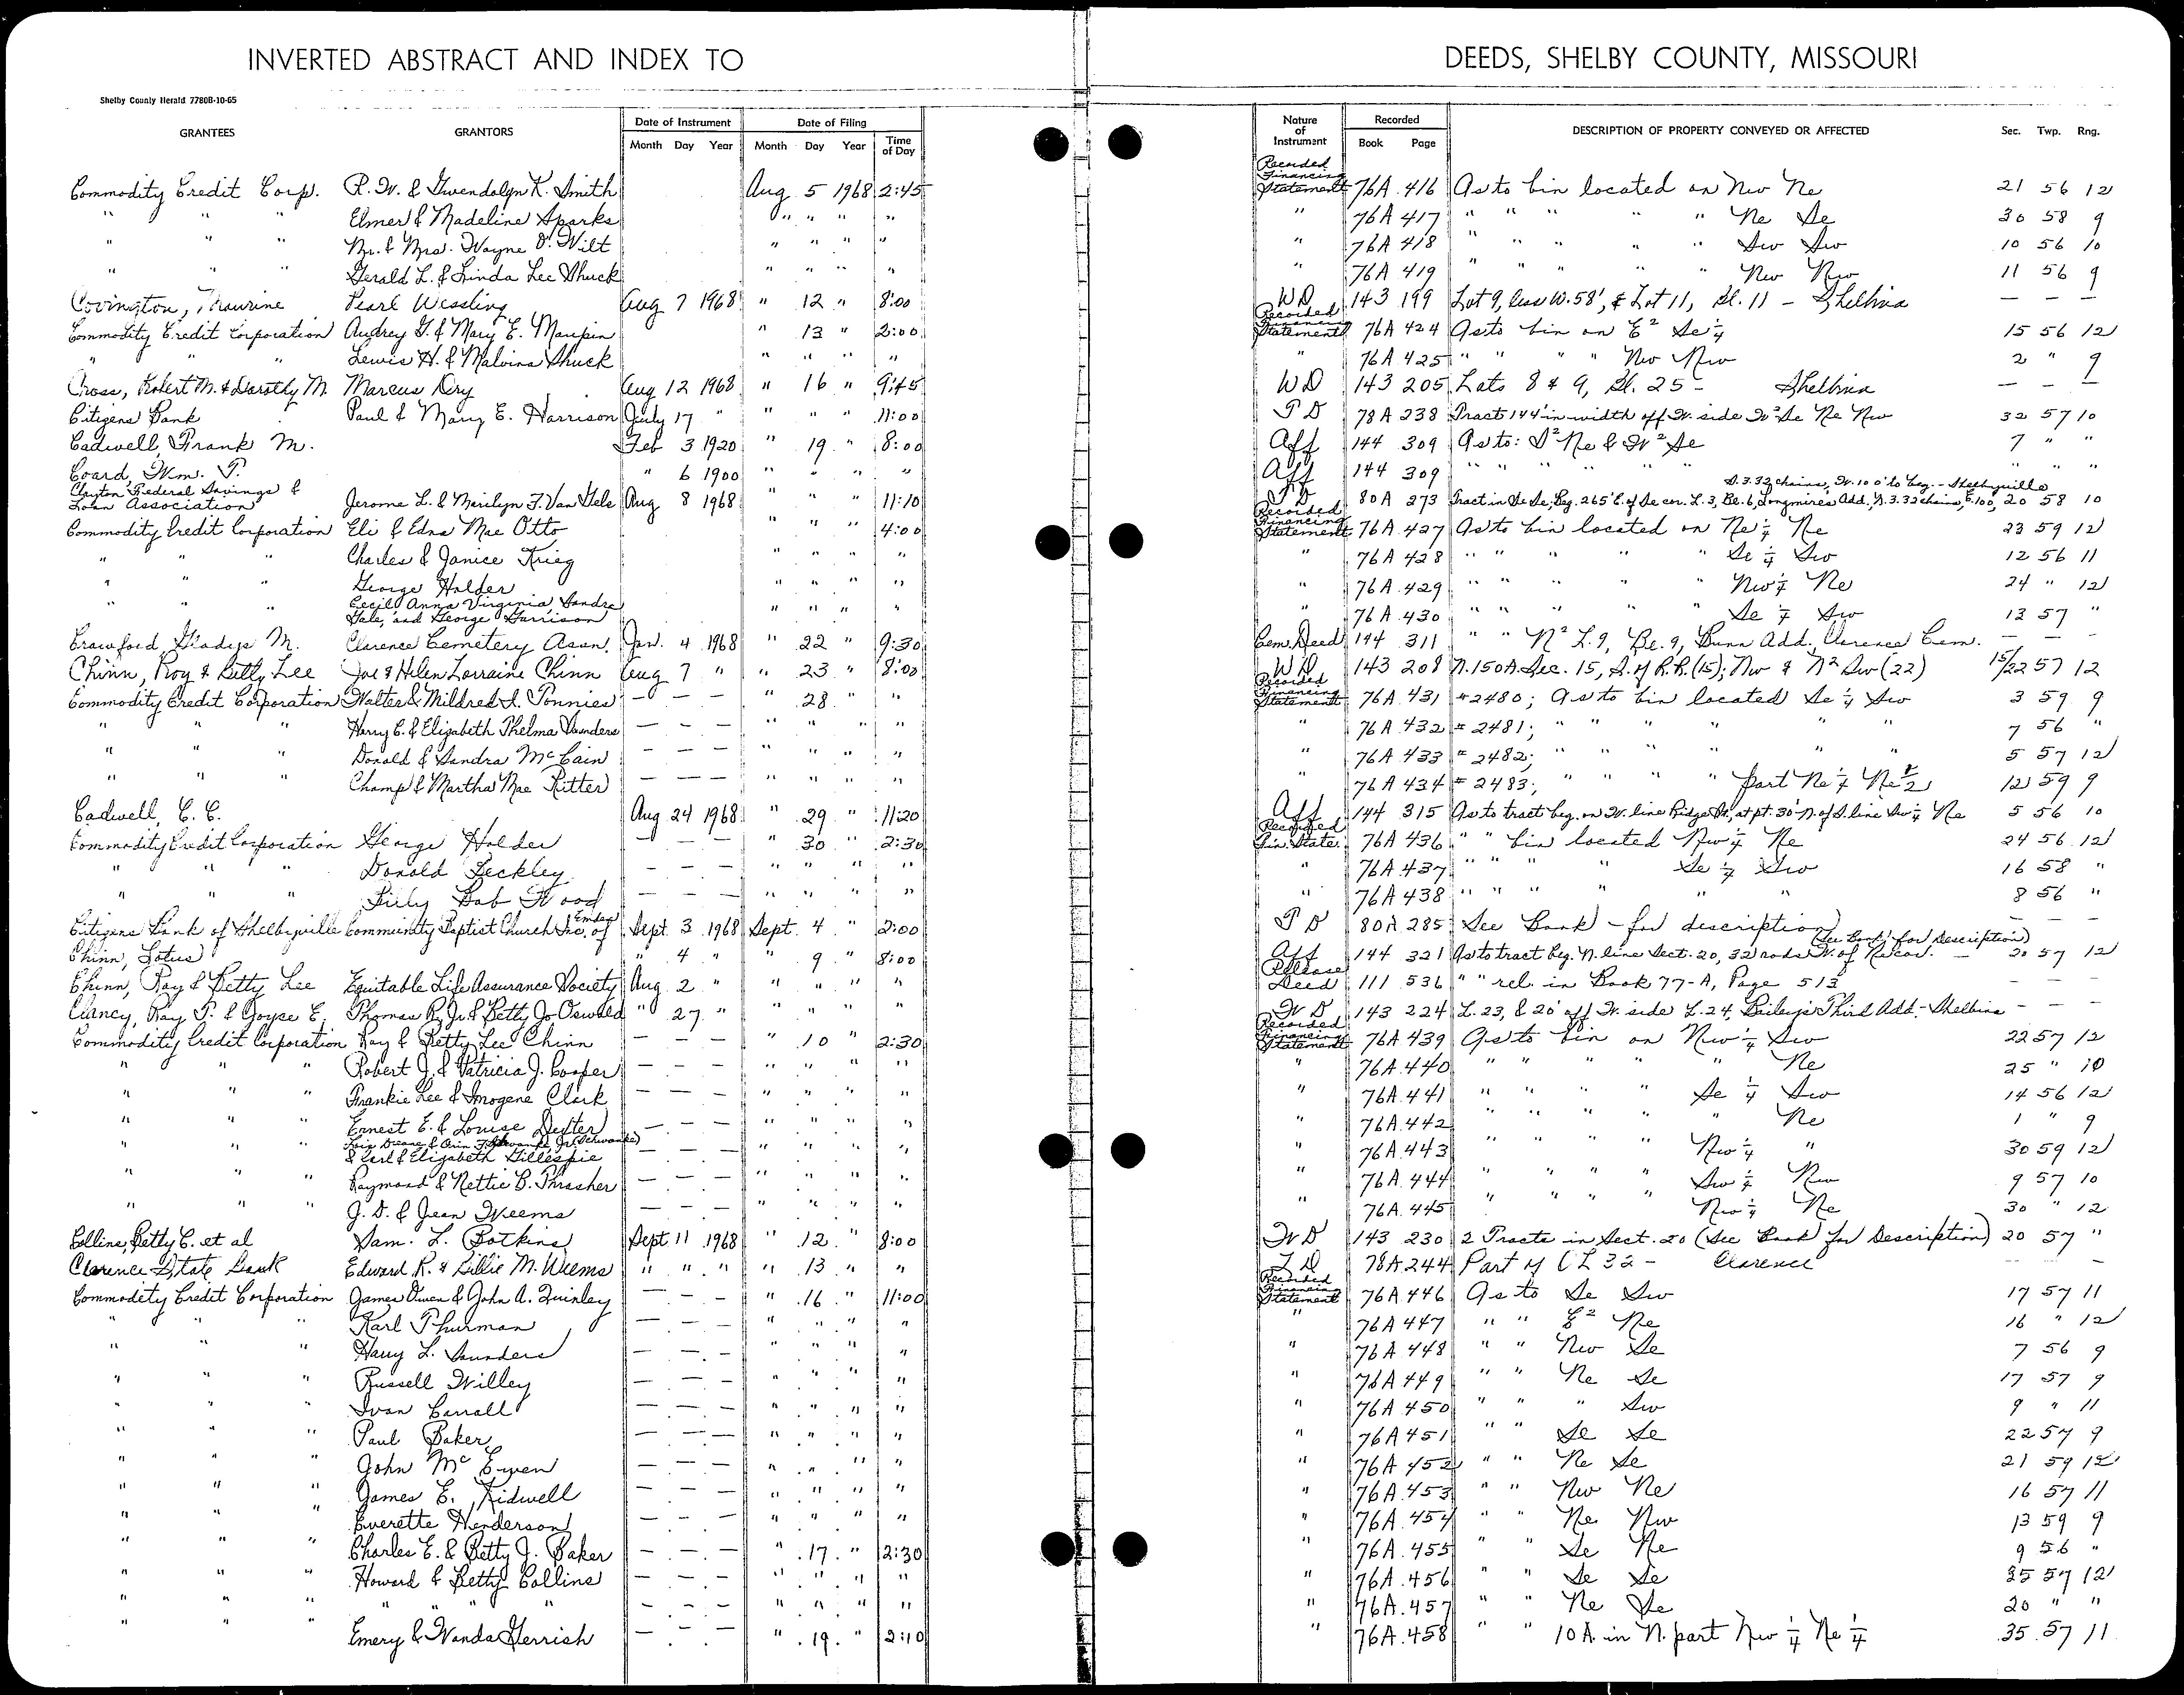 INVERTED ABSTRACT AND INDEX TO DEEDS, SHELBY COUNTY, MISSOURI
Shelby County Herald 7780B-10-65
GRANTEES GRANTORS Date of Instrument Month Day Year Date of Filing Month Day Year Time of Day Nature of Instrument Recorded Book Page DESCRIPTION OF PROPERTY CONVEYED OR AFFECTED Sec. Twp. Rng.
Commodity Credit Corp. R. W. & Gwendolyn K. Smith Aug 5 1968 2:45 Recorded Financing Statement 76A 416 As to bin located on Nw Ne 21 56 12
" " " Elmer & Madeline Sparks " " " " " 76A 417 " " " " " Ne Se 30 58 9
" " " Mr. & Mrs. Wayne V. Wilt " " " " " 76A 418 " " " " " Sw Sw 10 56 10
" " " Gerald L. & Linda Lee Shuck " " " " " 76A 419 " " " " " Nw Nw 11 56 9
Covington, Maurine Pearl Wessling Aug 7 1968 " 12 " 8:00 WD 143 199 Lot 9, less W. 58', & Lot 11, Bl. 11 - Shelbina — — —
Commodity Credit Corporation Audrey G. & Mary E. Maupin " 13 " 2:00 Recorded Financing Statement 76A 424 As to bin on E² Se ¼ 15 56 12
" " " Lewis H. & Malvina Shuck " " " " " 76A 425 " " " " Nw Nw 2 " 9
Cross, Robert M. & Dorothy M. Marcus Dry Aug 12 1968 " 16 " 9:45 WD 143 205 Lots 8 & 9, Bl. 25 - Shelbina — — —
Citizens Bank Paul & Mary E. Harrison July 17 " " " " 11:00 TD 78A 238 Tracts 144' in width off W. side W² Se Ne Nw 32 57 10
Cadwell, Frank M. Feb 3 1920 " 19 " 8:00 Aff 144 309 As to: S² Ne & W² Se 7 " "
Coard, Wm. T. " 6 1900 " " " " Aff 144 309 " " " " " " " "
Clayton Federal Savings & Loan Association Jerome L. & Marilyn F. Van Gels Aug 8 1968 " " " 11:10 TD 80A 273 Tract in Se Se; Beg. 265' E. of Se cor. L. 3, Bl. 6, Longmire's Add., N. 3.32 chains, E. 100, S. 3.32 chains, W. 100' to beg. - Shelbyville 20 58 10
Commodity Credit Corporation Eli & Edna Mae Otto " " " 4:00 Recorded Financing Statement 76A 427 As to bin located on Ne ¼ Ne 23 59 12
" " " Charles & Janice Krieg " " " " " 76A 428 " " " " " Se ¼ Sw 12 56 11
" " " George Holder " " " " " 76A 429 " " " " " Nw ¼ Ne 24 " 12
" " " Cecil, Anna Virginia, Sandra Gale, and George Garrison " " " " " 76A 430 " " " " " Se ¼ Sw 13 57 "
Crawford, Gladys M. Clarence Cemetery Assn. Jan. 4 1968 " 22 " 9:30 Cem. Deed 144 311 " " N² L. 9, Bl. 9, Bunn Add. Clarence Cem. — — —
Chinn, Roy & Betty Lee Joe & Helen Lorraine Chinn Aug 7 " " 23 " 8:00 WD 143 208 N. 150A. Sec. 15, S. of R.R. (15); Nw & N² Sw (22) 15/22 57 12
Commodity Credit Corporation Walter & Mildred I. Tonnies — — — " 28 " Recorded Financing Statement 76A 431 #2480; As to bin located Se ¼ Sw 3 59 9
" " " Harry C. & Elizabeth Thelma Saunders — — — " " " " " 76A 432 #2481; " " " " " 7 56 "
" " " Donald & Sandra McCain — — — " " " " " 76A 433 #2482; " " " " " 5 57 12
" " " Champ & Martha Mae Ritter — — — " " " " " 76A 434 #2483; " " " " part Ne ¼ Ne ½ 12 59 9
Cadwell, C. C. Aug 24 1968 " 29 " 11:20 Aff 144 315 As to tract beg. on W. line Ridge St., at pt. 30' N. of S. line Sw ¼ Ne 5 56 10
Commodity Credit Corporation George Holder — — — " 30 " 2:30 Recorded Fin. State. 76A 436 " " bin located Nw ¼ Ne 24 56 12
" " " Donald Feckley — — — " " " " " 76A 437 " " " " Se ¼ Sw 16 58 "
" " " Billy Bob Wood — — — " " " " " 76A 438 " " " " " " 8 56 "
Citizens Bank of Shelbyville Community Baptist Church Inc. of Emden Sept. 3 1968 Sept. 4 " 2:00 TD 80A 285 See Book - for description — — —
Chinn, Lotus " 4 " " 9 " 8:00 Aff 144 321 As to tract beg. N. line Sect. 20, 32 rods W. of Ne cor. (See Book for Description) 20 57 12
Chinn, Roy & Betty Lee Equitable Life Assurance Society Aug. 2 " " " " " Release Deed 111 536 " " rel. in Book 77-A, Page 513 — — —
Clancy, Ray T. & Joyce E. Thomas R. Jr. & Betty Jo Oswald " 27 " " " " " WD 143 224 L. 23, & 20' off W. side L. 24, Bailey's Third Add. - Shelbina — — —
Commodity Credit Corporation Roy & Betty Lee Chinn — — — " 10 " 2:30 Recorded Financing Statement 76A 439 As to bin on Nw ¼ Sw 22 57 12
" " " Robert J. & Patricia J. Cooper — — — " " " " " 76A 440 " " " " " Ne 25 " 10
" " " Frankie Lee & Imogene Clark — — — " " " " " 76A 441 " " " " Se ¼ Sw 14 56 12
" " " Ernest E. & Louise Dester — — — " " " " " 76A 442 " " " " " Ne 1 " 9
" " " & Carl & Elizabeth Gillespie — — — " " " " " 76A 443 " " " " Nw ¼ " 30 59 12
" " " Raymond & Nettie B. Thrasher — — — " " " " " 76A 444 " " " " Sw ¼ Nw 9 57 10
" " " J. D. & Jean Weems — — — " " " " " 76A 445 " " " " Nw ¼ Ne 30 " 12
Collins, Betty C. et al Sam. L. Botkins Sept 11 1968 " 12 " 8:00 WD 143 230 2 Tracts in Sect. 20 (See Book for Description) 20 57 "
Clarence State Bank Edward R. & Billie M. Weems " " " " 13 " " TD 78A 244 Part of OL 32 - Clarence — — —
Commodity Credit Corporation James Owen & John A. Quinley — — — " 16 " 11:00 Recorded Financing Statement 76A 446 As to Se Sw 17 57 11
" " " Karl Thurman — — — " " " " " 76A 447 " " E² Ne 16 " 12
" " " Harry L. Saunders — — — " " " " " 76A 448 " " Nw Se 7 56 9
" " " Russell Willey — — — " " " " " 76A 449 " " Ne Se 17 57 9
" " " Ivan Carroll — — — " " " " " 76A 450 " " " Sw 9 " 11
" " " Paul Baker — — — " " " " " 76A 451 " " Se Se 22 57 9
" " " John McEwen — — — " " " " " 76A 452 " " Ne Se 21 59 12
" " " James E. Kidwell — — — " " " " " 76A 453 " " Nw Ne 16 57 11
" " " Everette Henderson — — — " " " " " 76A 454 " " Ne Nw 13 59 9
" " " Charles E. & Betty J. Baker — — — " 17 " 2:30 " 76A 455 " " Se Ne 9 56 "
" " " Howard & Betty Collins — — — " " " " " 76A 456 " " Se Se 35 57 12
" " " " " " — — — " " " " " 76A 457 " " Ne Se 20 " "
" " " Emery & Wanda Gerrish — — — " 19 " 2:10 " 76A 458 " " 10 A. in N. part Nw ¼ Ne ¼ 35 57 11